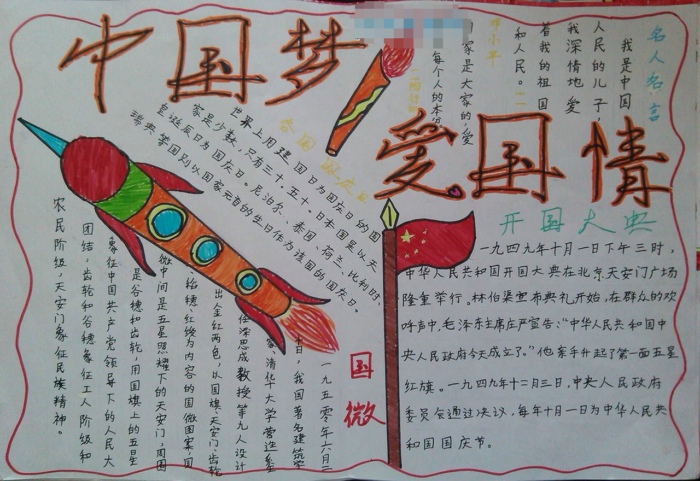 中国梦
爱国情
名人名言
我是中国
人民的儿子,
我深情地爱
着我的祖国
和人民。
邓小平
国家是大家的,爱
每个人的本分
各国国庆日
世界上用建国日为国庆日的国
家是少数,只有三十.五十.日本国是以天
皇诞辰日为国庆日。尼泊尔、泰国、荷兰、比利时、
瑞典等国则以国家元首的生日作为该国的国庆日。
开国大典
一九四九年十月一日下午三时,
中华人民共和国开国大典在北京天安门广场
隆重举行。林伯渠宣布典礼开始,在群众的欢
呼声中,毛泽东主席庄严宣告:“中华人民共和国中
央人民政府今天成立了。”他亲手升起了第一面五星
红旗。一九四九年十二月三日,中央人民政府
委员会通过决议,每年十月一日为中华人民共
和国国庆节。
国微
一九五零年六月二
日,我国著名建筑学
家、清华大学营造系
任梁思成教授等九人设计
出金红两色,以国旗、天安门、齿轮
、稻穗为内容的国微图案,国
微中间是五星照耀下的天安门,周围
是谷穗和齿轮,用国旗上的五星
象征中国共产党领导下的人民大
团结,齿轮和谷穗象征工人阶级和
农民阶级,天安门象征民族精神。